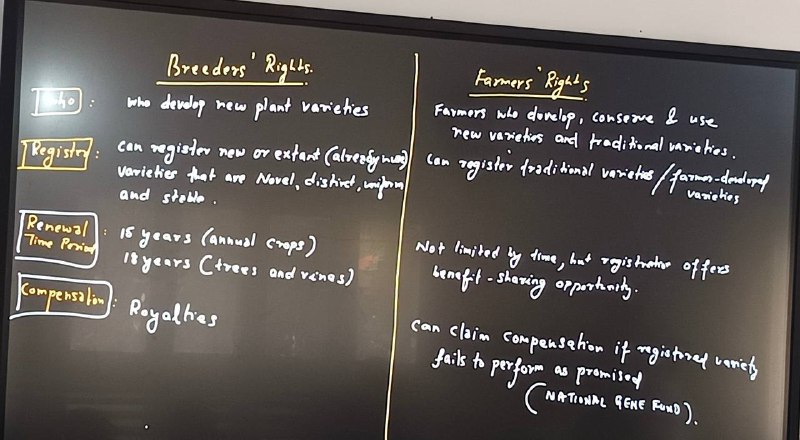 Breeders' Rights.
Who : who develop new plant varieties
Register : can register new or extant (already
varieties that are Novel, distinct, uniform
and stable.
Renewal
Time Period : 15 years (annual crops)
18 years (trees and vines)
Compensation : Royalties
Farmers' Rights
Farmers who develop, conserve & use
new varieties and traditional varieties.
Can register traditional varieties / farmer-developed
varieties
Not limited by time, but registration offers
benefit-sharing opportunity.
Can claim compensation if registered variety
fails to perform as promised
(NATIONAL GENE FUND).